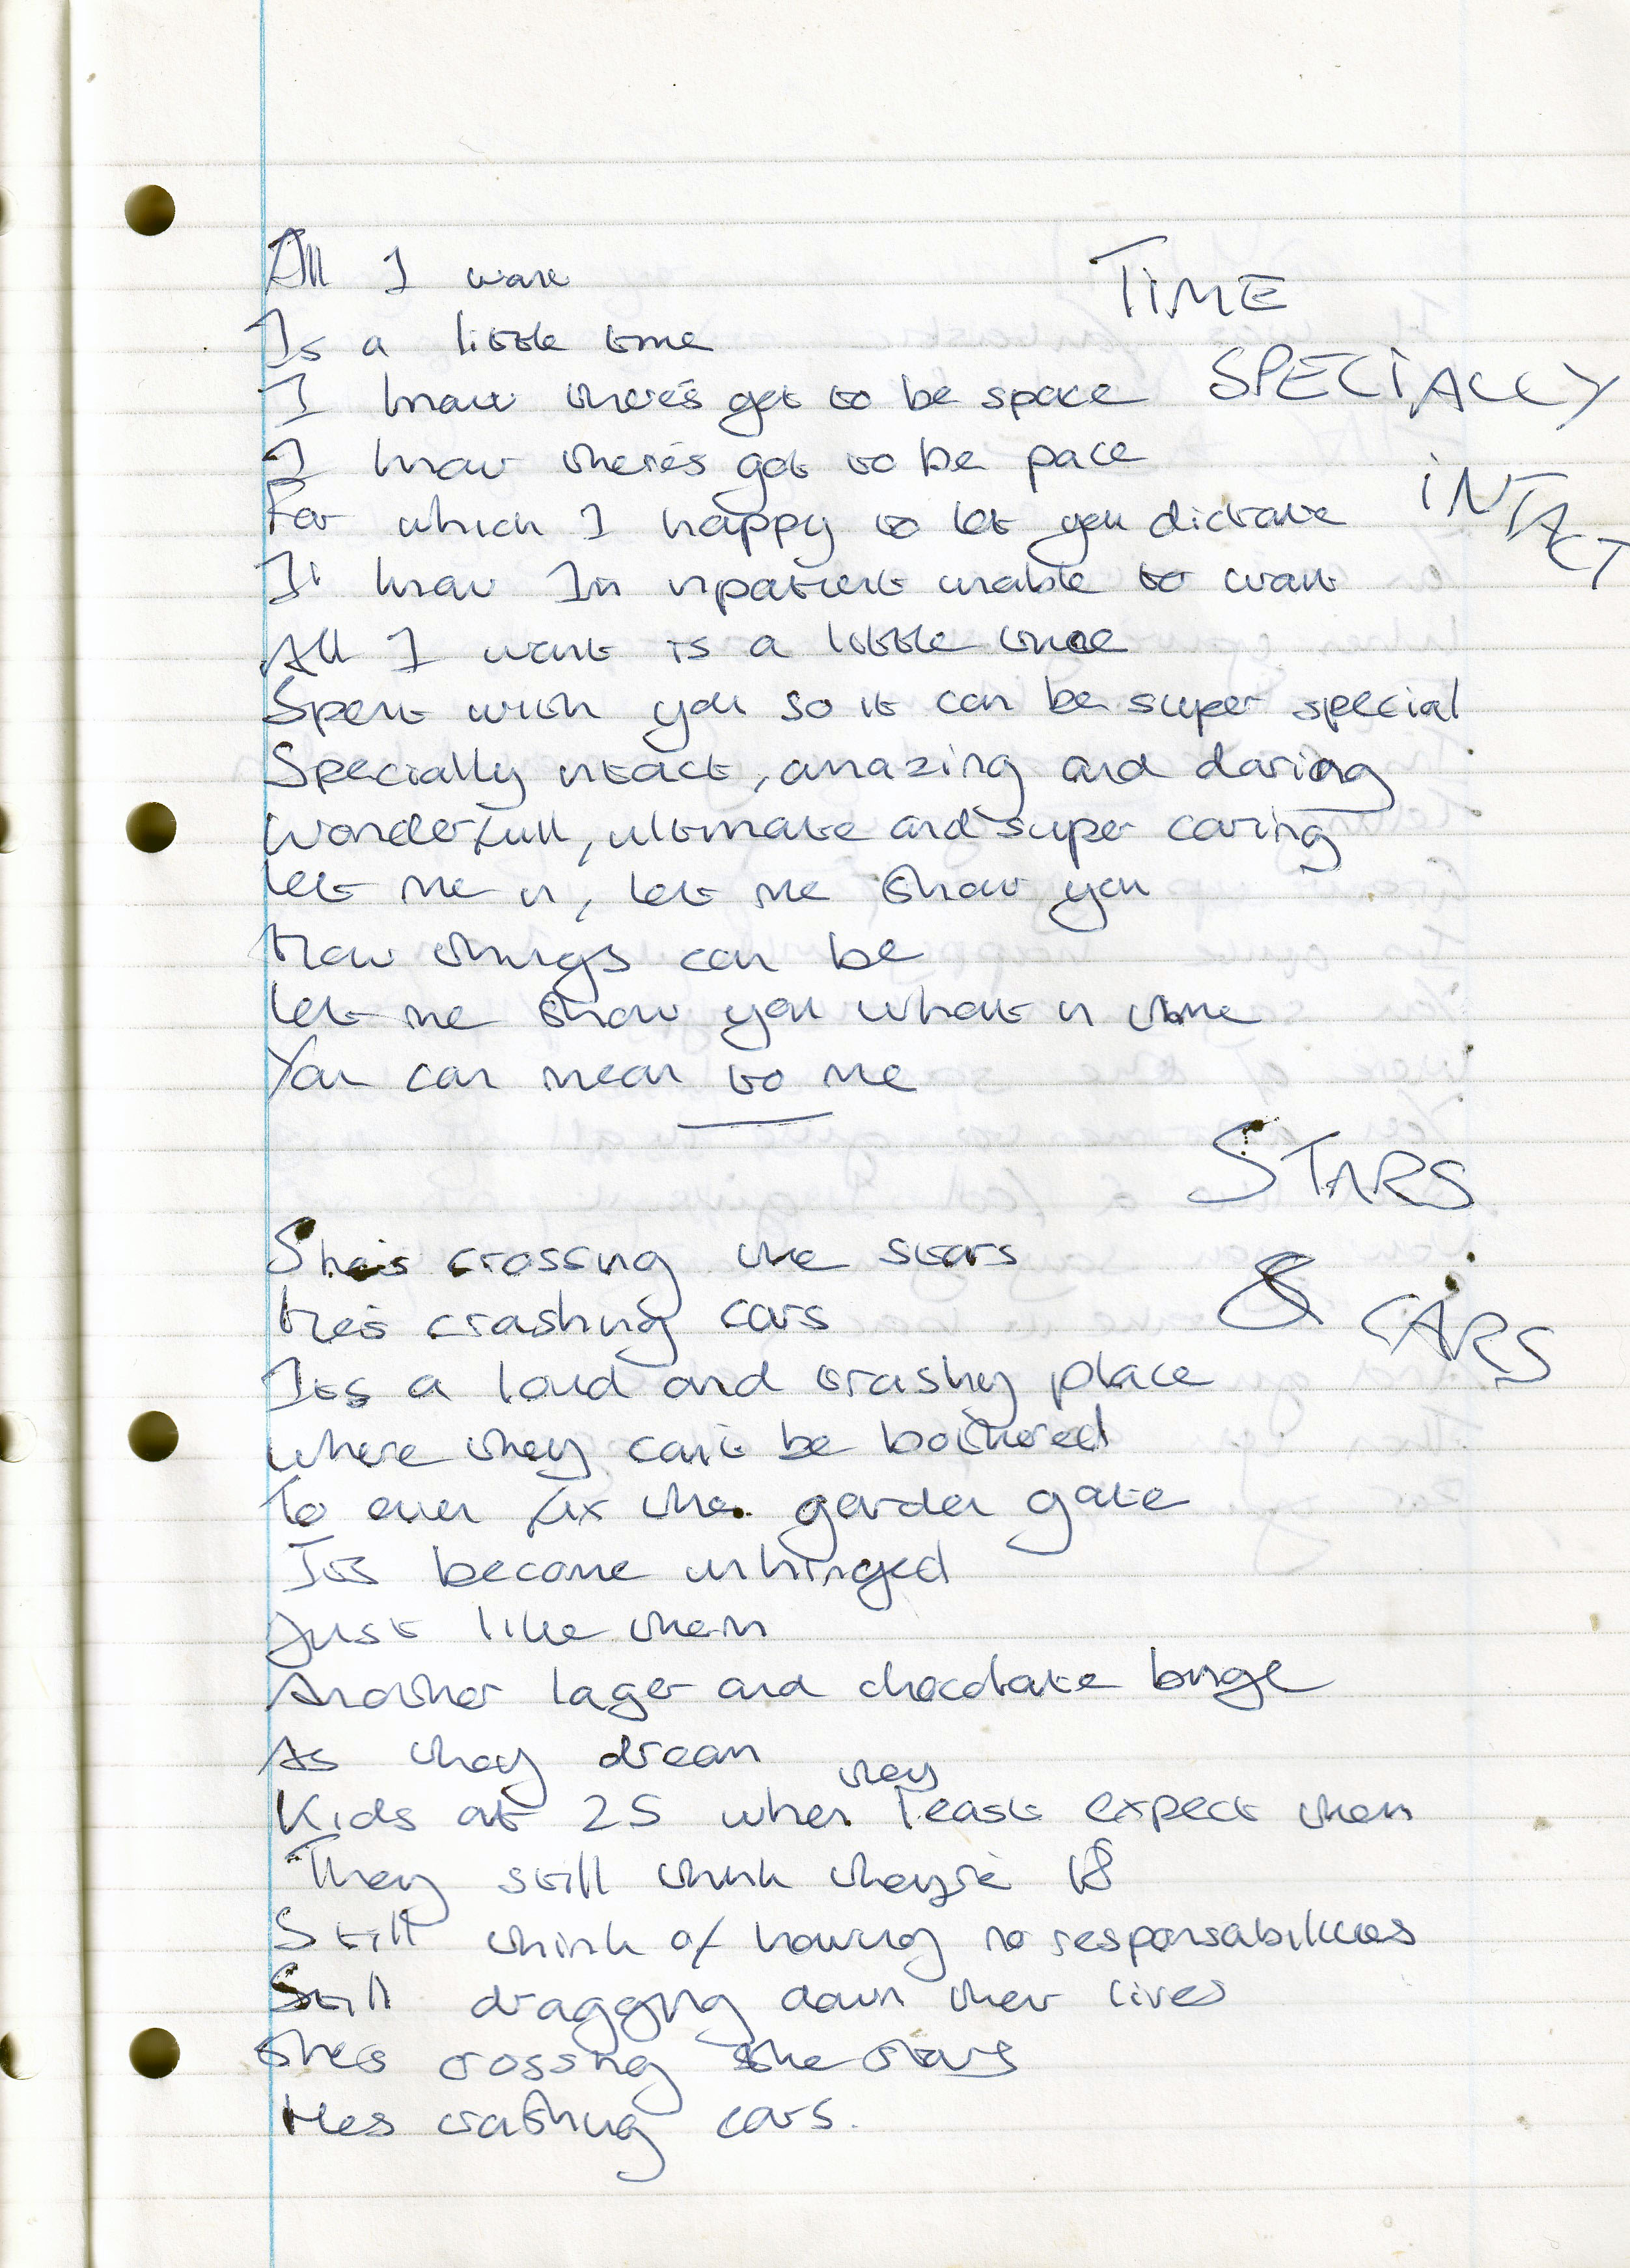 TIME
SPECIALLY
INTACT
All I want
Is a little time
I know there's got to be space
I know there's got to be pace
For which I happy to let you dictate
I know Im inpatient unable to wait
All I want is a little time
Spent with you so it can be super special
Specially intact, amazing and daring
Wonderfull, ultimate and super caring
Let me in, let me show you
How things can be
Let me show you what in time
You can mean to me
STARS
& CARS
She's crossing the stars
He's crashing cars
Its a loud and trashy place
Where they can't be bothered
To even fix the garden gate
Its become unhinged
Just like them
Another lager and chocolate binge
As they dream
Kids at 25 when they least expect them
They still think they're 18
Still think of having no responsabilities
Still dragging down their lives
Shes crossing the stars
Hes crashing cars.